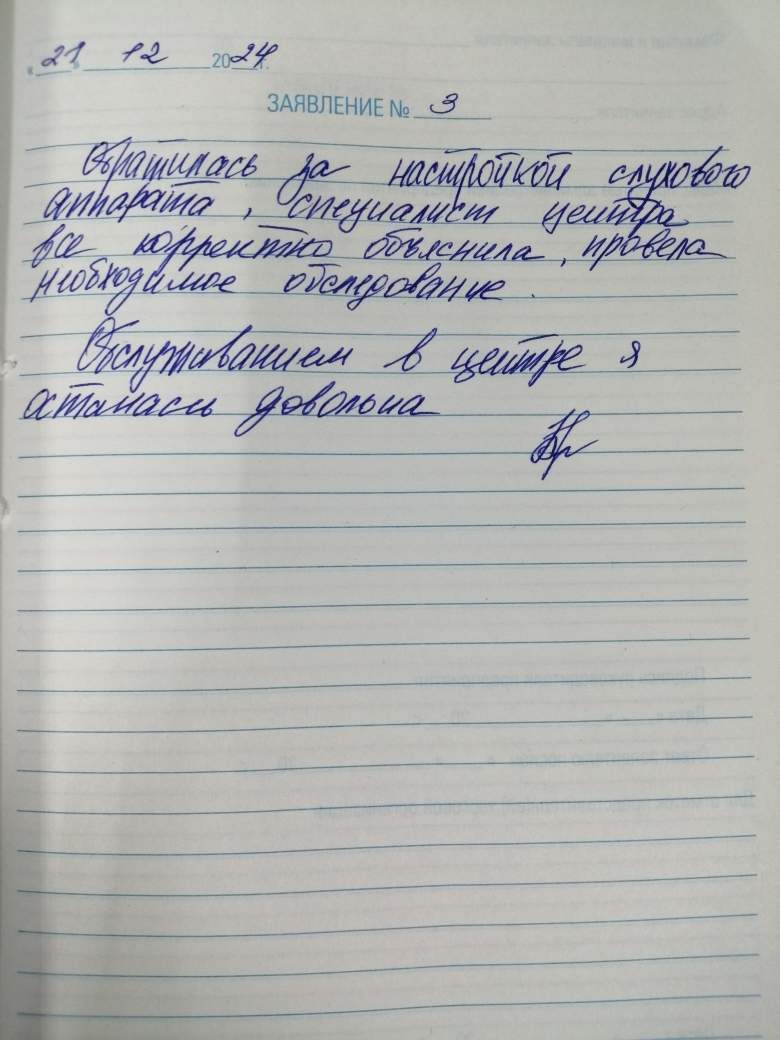 « 21 » 12 2024 г.
ЗАЯВЛЕНИЕ № 3
Обратилась за настройкой слухового
аппарата, специалист центра
все корректно объяснила, провела
необходимое обследование.
Обслуживанием в центре я
осталась довольна